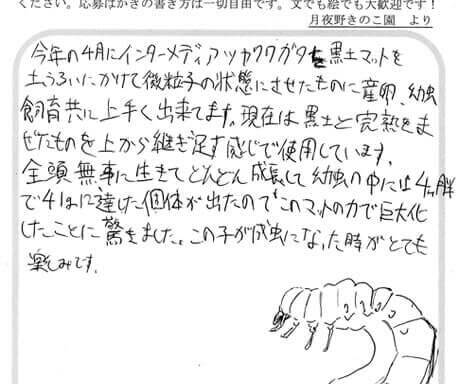 ください。応募はがきの書き方は一切自由です。文でも絵でも大歓迎です！
月夜野きのこ園　より
今年の4月にインターメディアツヤクワガタを黒土マットを
土うるいにかけて微粒子の状態にさせたものに産卵、幼虫
飼育共に上手く出来てます。現在は黒土と完熟をま
ぜたものを上から継ぎ足す感じで使用しています。
全頭無事に生きてどんどん成長して幼虫の中には4ヵ月半
で41gに達した個体が出たのでこのマットの力で巨大化
したことに驚きました。この子が成虫になった時がとても
楽しみです。